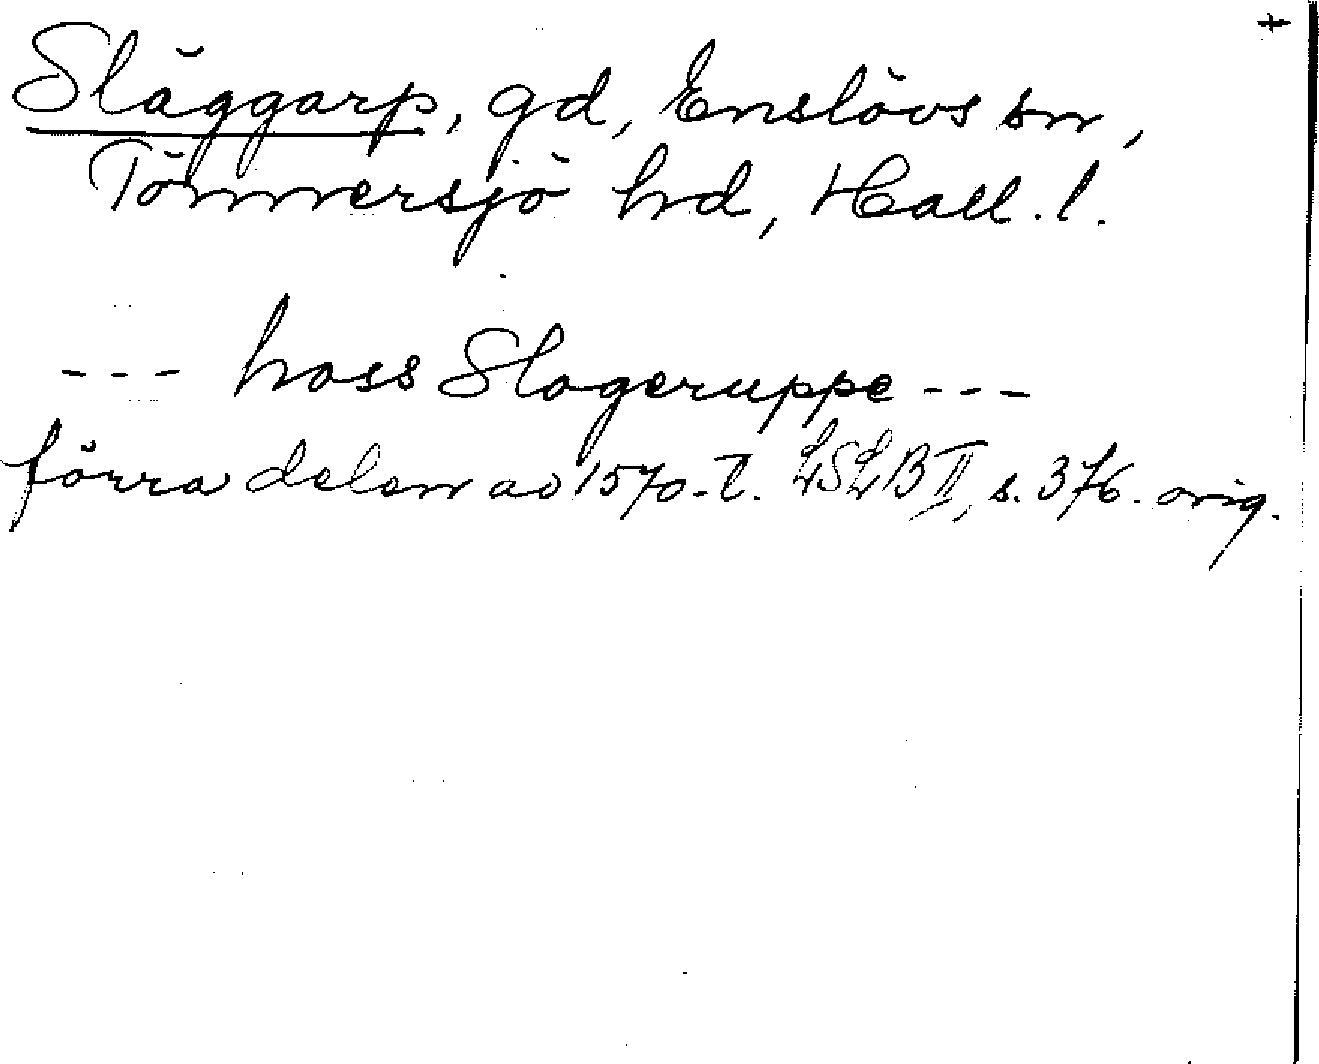 +
Släggarp, gd, Enslövs sn,
Tönnersjö hd, Hall. l.
--- hoss Slogeruppe ---
förra delen av 1570-t. LSLB II, s. 376. orig.